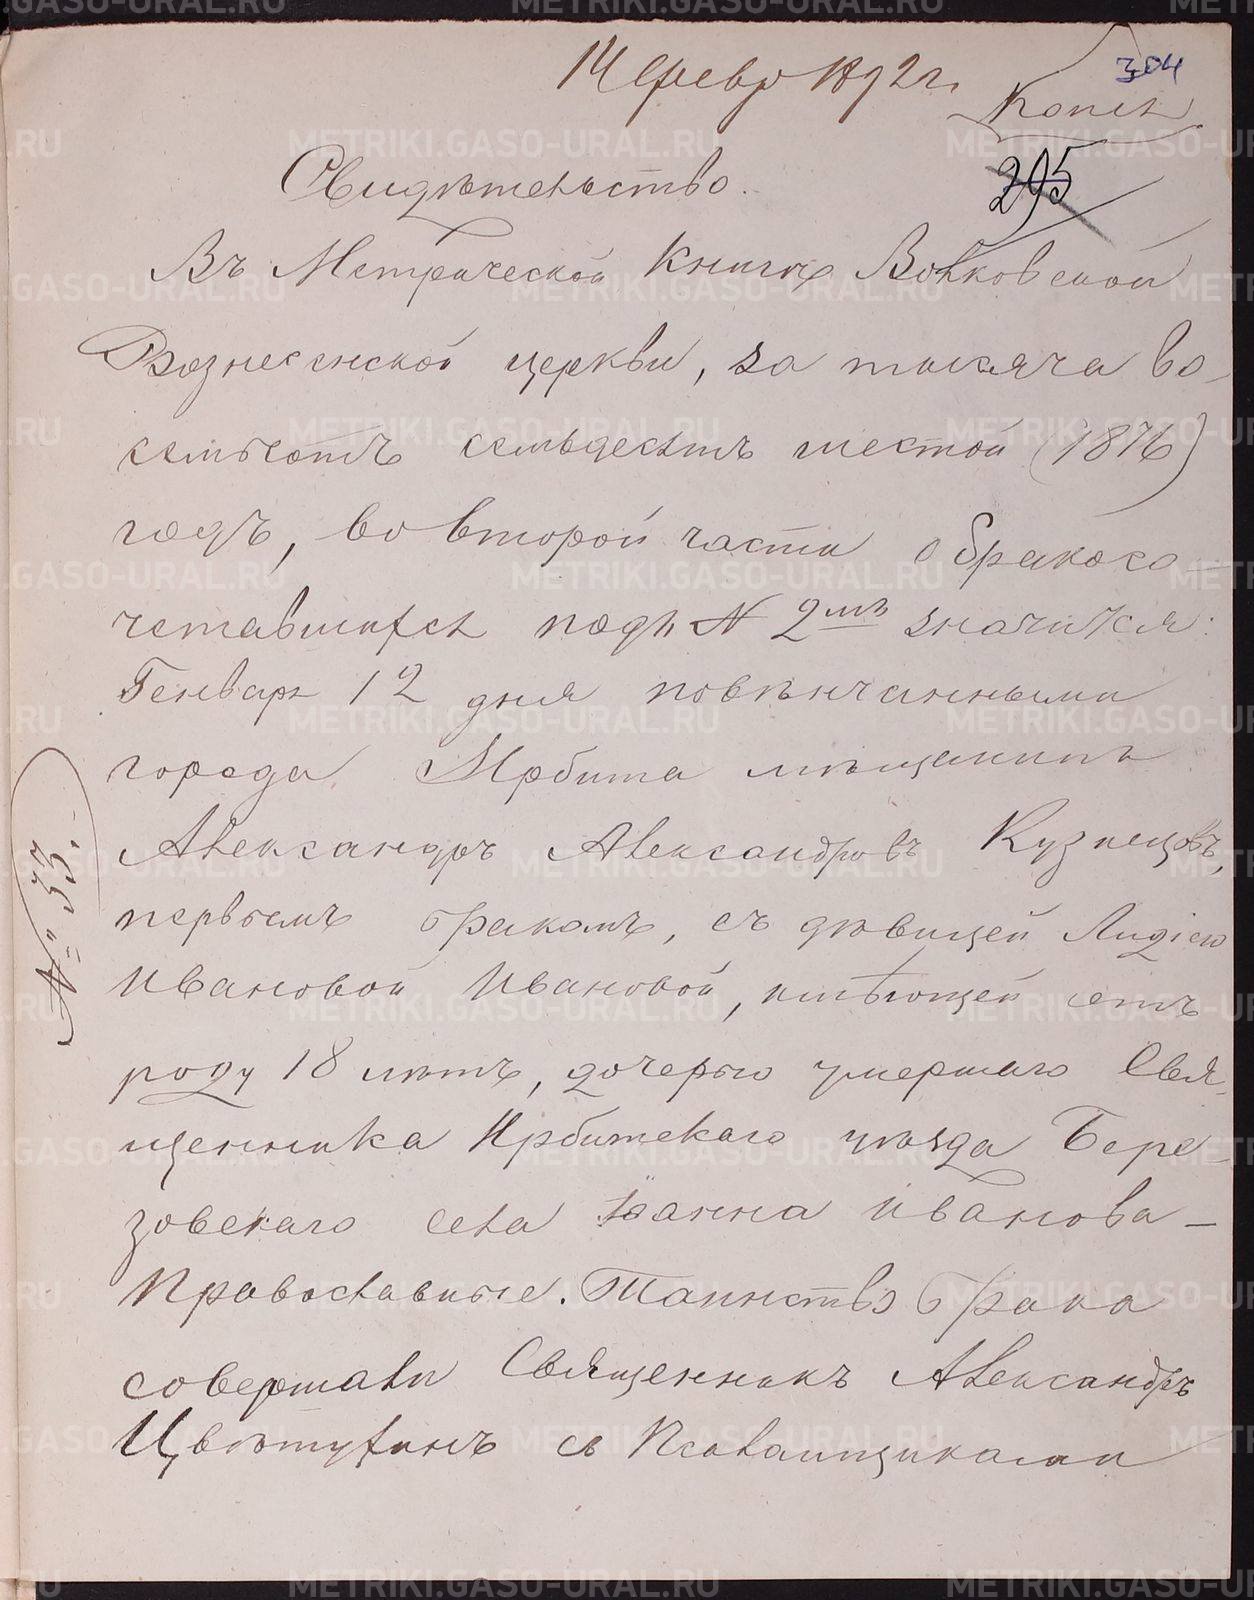 304
14 февр 1892 г.
Копія
295
Свидѣтельство.
Въ Метрической Книгѣ Волковской
Вознесенской церкви, за тысяча во-
семьсотъ семьдесятъ шестой (1876)
годъ, во второй части о бракосо-
четавшихся подъ № 2мъ значится:
Генваря 12 дня повѣнчанными
города Ирбита мѣщанинъ
Александръ Александровъ Кузнецовъ,
первымъ бракомъ, съ дѣвицей Лидіею
Ивановой Ивановой, имѣющей отъ
роду 18 лѣтъ, дочерью умершаго Свя-
щенника Ирбитскаго уѣзда Бере-
зовскаго села Іоанна Иванова –
Православные. Таинство брака
совершали Священникъ Александръ
Цвѣтухинъ съ Псаломщиками
№ 33.
METRIKI.GASO-URAL.RU